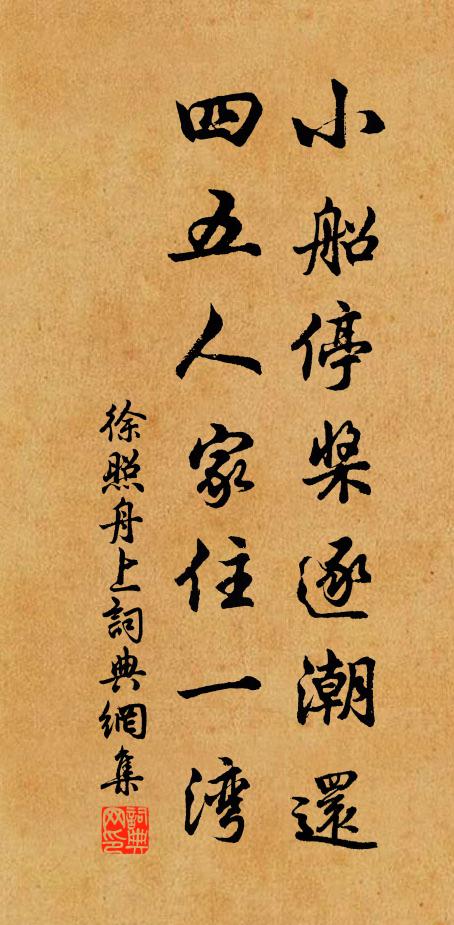 小船停桨逐潮還
四五人家住一湾
徐照舟上詞典網集
詞典网印